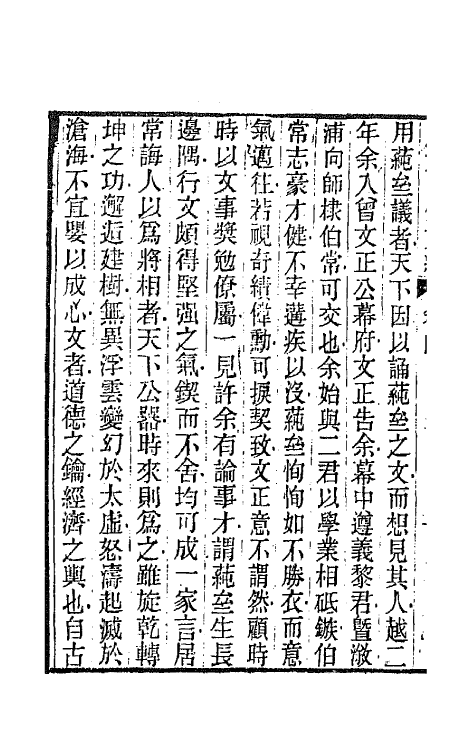 用蒓垒議者天下因以誦蒓垒之文而想見其人越二
年余入曾文正公幕府文正告余幕中遵義黎君暨漵
浦向師棣伯常可交也余始與二君以學業相砥鏃伯
常志豪才健不幸遘疾以沒蒓垒恂恂如不勝衣而意
氣邁往若視奇績偉勳可捩契致文正意不謂然顧時
時以文事獎勉僚屬一見許余有論事才謂蒓垒生長
邊隅行文頗得堅强之氣鍥而不舍均可成一家言居
常誨人以爲將相者天下公器時來則爲之雖旋乾轉
坤之功邂逅建樹無異浮雲變幻於太虛怒濤起滅於
滄海不宜嬰以成心文者道德之鑰經濟之輿也自古